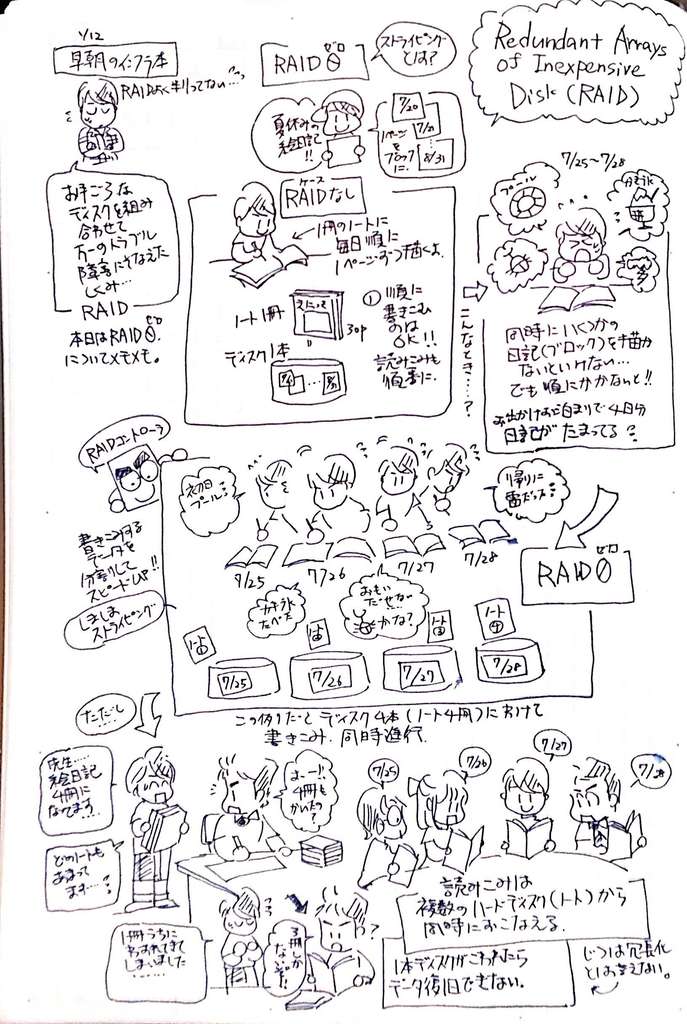 1/12
早朝のインフラ本
RAIDよく判ってない…
お手ごろな
ディスクを組み
合わせて
万一のトラブル
障害にそなえた
しくみ…
RAID
本日はRAID0
ゼロ
についてメモメモ。
RAID0
ゼロ
ストライピング
とは?
Redundant Arrays
of Inexpensive
Disk (RAID)
夏休みの
絵日記
!!
7/20
7/21
8/31
1ページ
を
ブロック
に.
ケース
RAIDなし
1冊のノートに
毎日順に
1ページずつ描くよ.
ノート1冊
えにっき
30p
ディスク1本
…
① 順に
書きこむ
のは
OK!!
読みこみも
順番に.
こんなとき…?
7/25~7/28
プール
同時にいくつかの
日記(ブロック)を描か
ないといけない…
でも順にかかないと!!
お出かけお泊まりで4日分
日記がたまってる
RAIDコントローラ
書きこみする
データを
分割して
スピードUP!!
しましま
ストライピング
初日
プール
帰りに
雷だった
7/25
7/26
7/27
7/28
かき氷
たべた
おもい
だせない…
かな?
RAID0
ゼロ
ノート
①
ノート
④
7/25
7/26
7/27
7/28
この例だとディスク4本(ノート4冊)にわけて
書きこみ.同時進行.
ただし
先生……
絵日記
4冊に
なってます…
どのノートも
あまって
ます……
まー!!
4冊も
かいたの?
7/25
7/26
7/27
7/28
読みこみは
複数のハードディスク(ノート)から
同時におこなえる.
1冊うちに
わすれてきて
しまいました
………
3冊しか
ないぞ!
?
1本ディスクがこわれたら
データ復旧できない.
じつは冗長化
とは言えない。